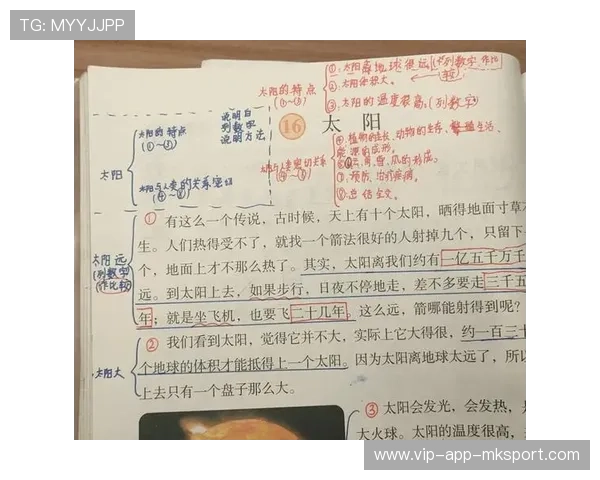 TG: MYYJJPP
①太阳离地球很远。(列数字、作比较)
太阳的特点
(①~③)
②太阳体积大。
③太阳的温度很高。(列数字)
说明白
列数字
说明方法
太阳的特点
(①~③)
16 太阳
太阳
太阳与人类的关系密切
(④~⑧)
④植物的生长、动物的生存、生活、
的形成。
的形成。
⑦预防、治疗疾病。
⑧总结全文。
太阳远
(列数字
作比较)
① 有这么一个传说,古时候,天上有十个太阳,晒得地面寸草
生。人们热得受不了,就找一个箭法很好的人射掉九个,只留下
个,地面上才不那么热了。其实,太阳离我们约有一亿五千万千
远。到太阳上去,如果步行,日夜不停地走,差不多要走三千五
年;就是坐飞机,也要飞二十几年。这么远,箭哪能射得到呢?
② 我们看到太阳,觉得它并不大,实际上它大得很,约一百三十
个地球的体积才能抵得上一个太阳。因为太阳离地球太远了,所以
上去只有一个盘子那么大。
太阳大
③ 太阳会发光,会发热,是
大火球。太阳的温度很高,
www.vip-app-mksport.com